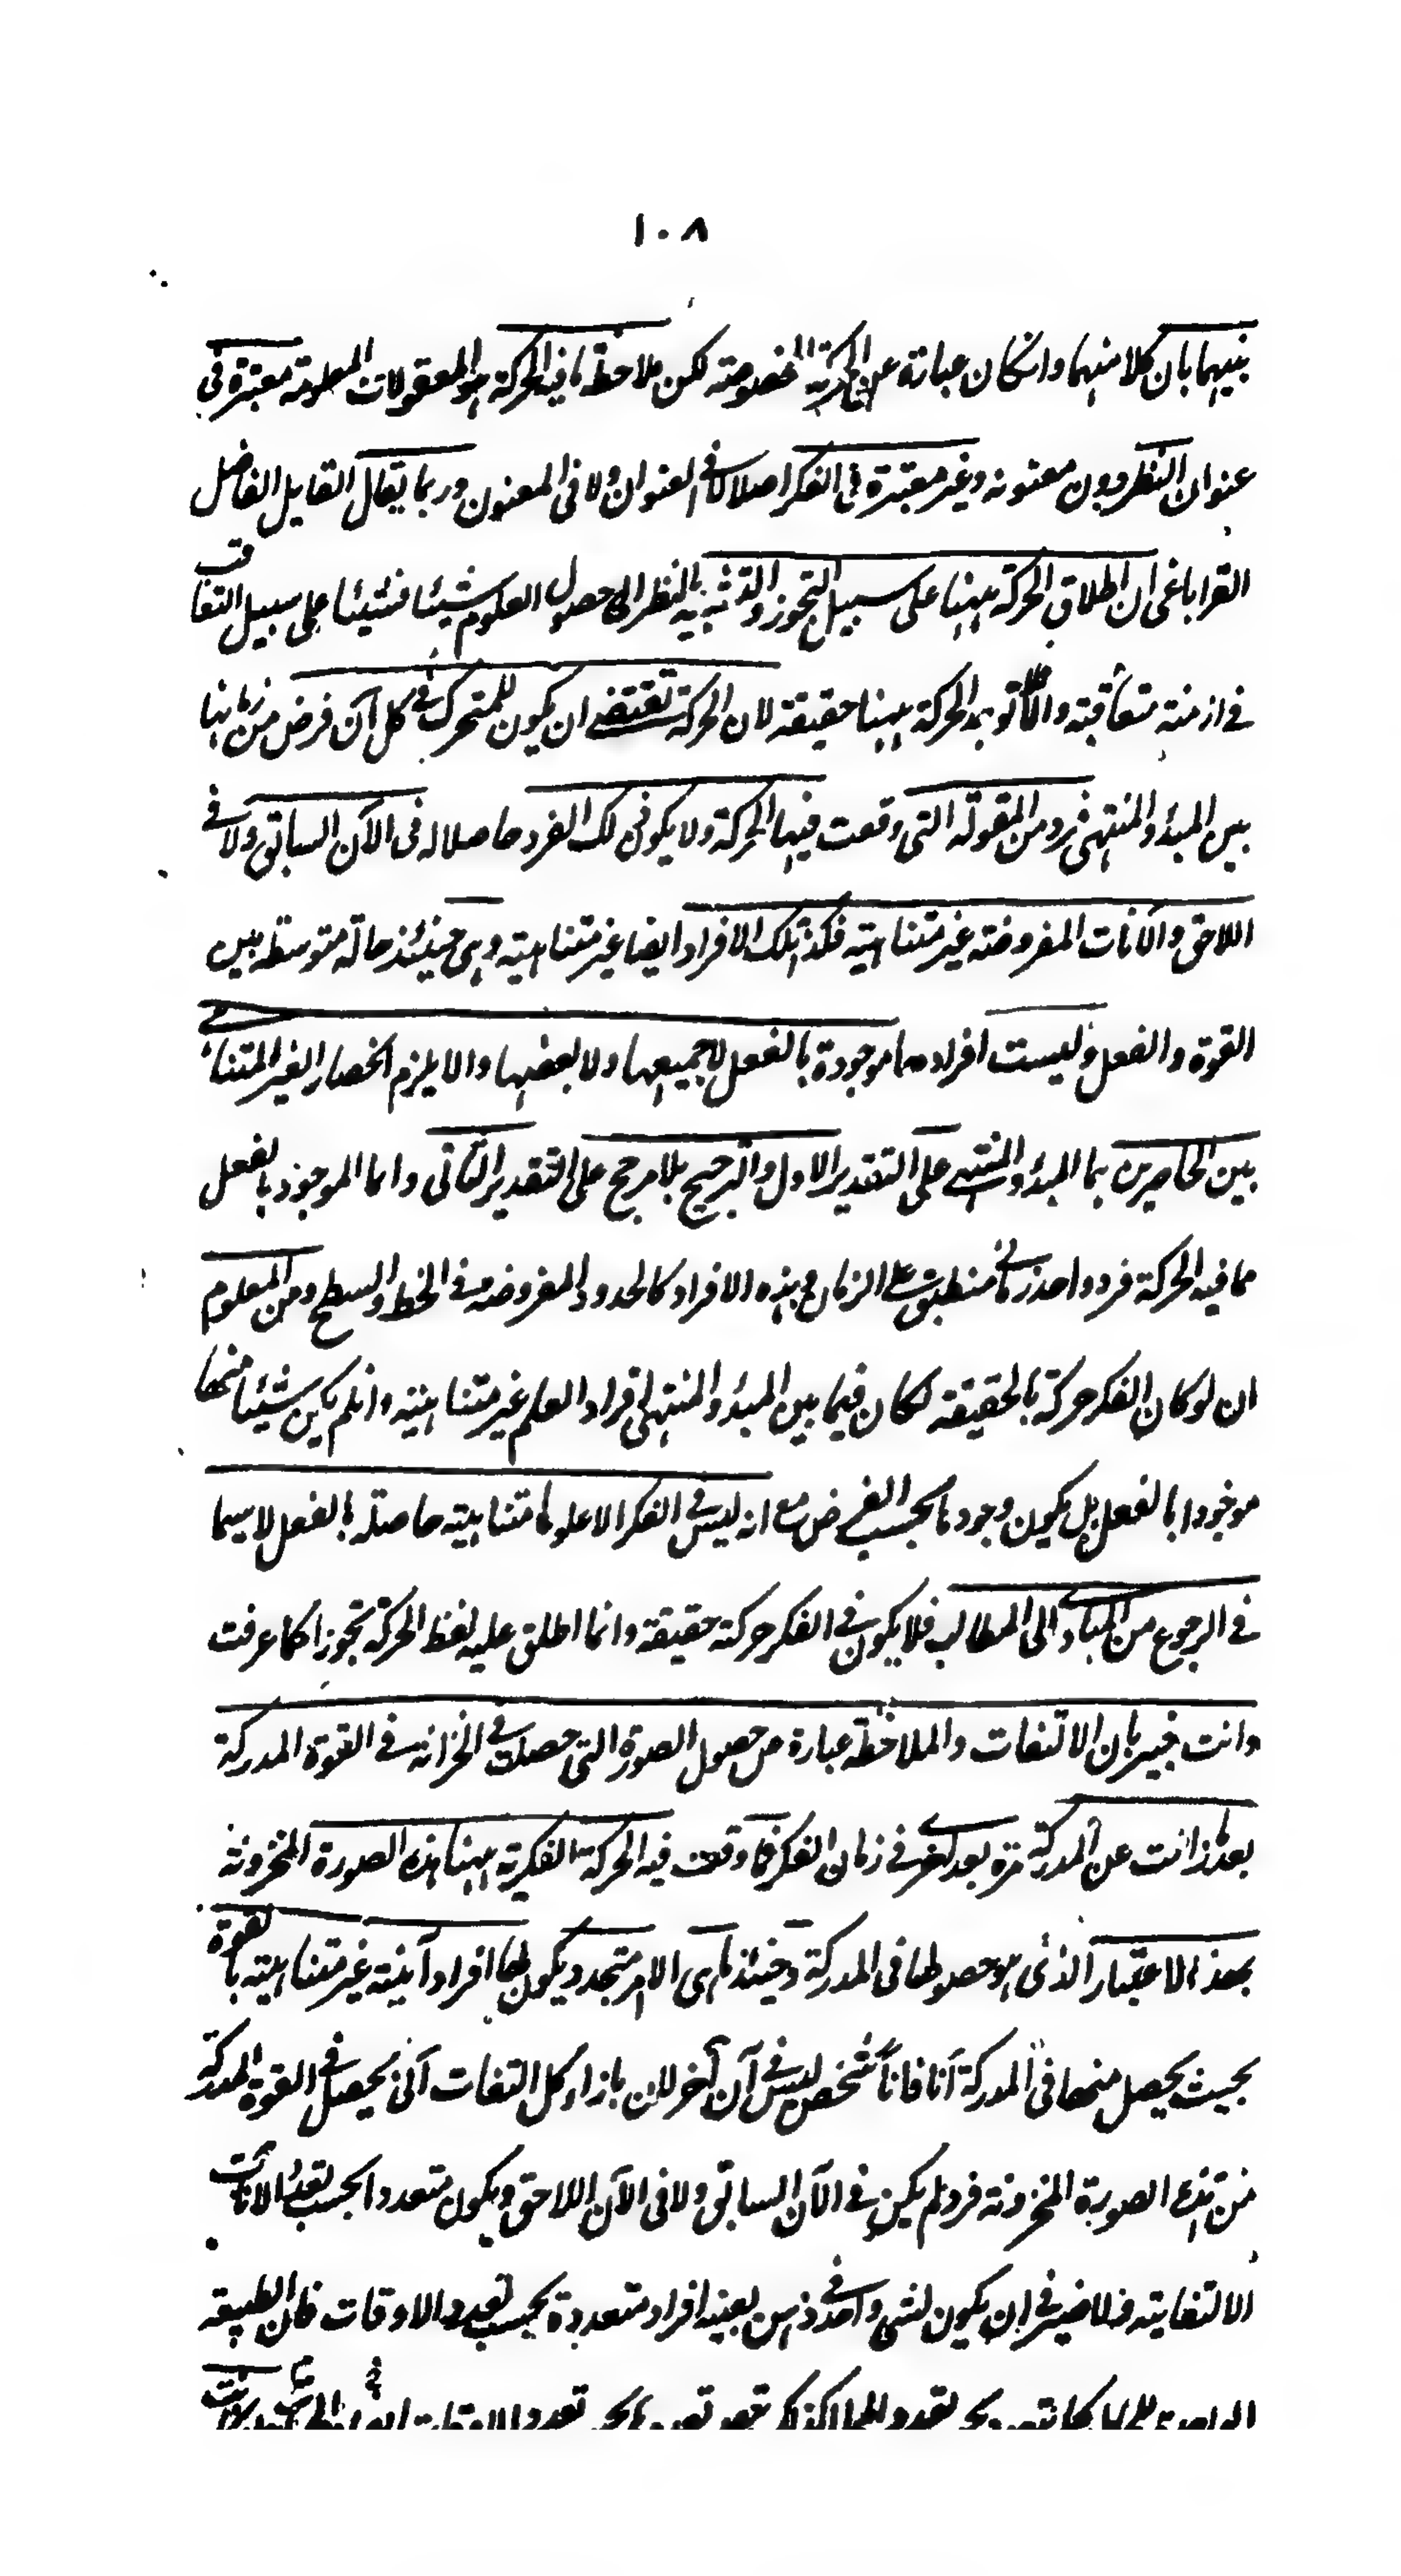 ١٠٨
بينهما بان كلا منهما وان كان عبارة عن الحركة المخصوصة لكن ملاحظة ما فيه الحركة هو المعقولات المعلومة معتبرة فى
عنوان النظر دون معنونه وغير معتبرة فى الفكر اصلا لا فى العنوان ولا فى المعنون وربما يقال القايل الفاضل
القراباغى ان اطلاق الحركة ههنا على سبيل التجوز والتشبيه بالنظر الى حصول العلوم شيئا فشيئا على سبيل التعاقب
فى ازمنة متعاقبة والا الحركة ههنا حقيقة لان الحركة تقتضے ان يكون للمتحرك فى كل آن فرض من زمانها
بين المبدؤ والمنتهى فرد من المقولة التى وقعت فيها الحركة ولا يكون ذلك الفرد حاصلا له فى الآن السابق ولا فى
اللاحق والآنات المفروضة غير متناهية فكذا تلك الافراد ايضا غير متناهية وهى حينئذ حالة متوسطه بين
القوة والفعل وليست افرادها موجودة بالفعل لا جميعها ولا بعضها والا يلزم انحصار الغير المتناهے
بين الحاصرين هما المبدؤ والمنتهے على التقدير الاول والترجيح بلا مرجح على التقدير الثانى وانما الموجود بالفعل
مما فيه الحركة فرد واحد زمانے منطبق على الزمان وهذه الافراد كالحدود المفروضة فى الخط والسطح ومن المعلوم
ان لو كان الفكر حركة بالحقيقة لكان فيما بين المبدؤ والمنتهى افراد العلم غير متناهية وان لم يكن شيئا منها
موجودا بالفعل بل يكون وجودها بحسب الفرض مع انه ليس فى الفكر الا علوما متناهية حاصلة بالفعل لاسيما
فى الرجوع من المبادى الى المطالب فلا يكون فى الفكر حركة حقيقة وانما اطلق عليه لفظ الحركة تجوزا كما عرفت
وانت خبير بان الالتفات والملاحظة عبارة من حصول الصورة التى حصلت فى الخزانة فى القوة المدركة
بعد زالت عن المدركة مرة بعد اخرے فى زمان الفكر فما وقعت فيه الحركة الفكرية ههنا هذه الصورة المخزونة
بهذا الاعتبار الذى هو حصولها فى المدركة وحينئذ ما هى الا امر متجدد ويكون لها افراد آنية غير متناهية بالقوة
بحيث يحصل منها فى المدركة آنا فآنا شخص ليس فى آن آخر لان بازاء كل التفات آنى يحصل فى القوة المدركة
من هذه الصورة المخزونة فرد لم يكن فى الآن السابق ولا فى الآن اللاحق ويكون متعددا بحسب تعدد الآنات
الالتفاتية فلا ضير فى ان يكون لشى واحد فى ذهن بعينه افراد متعددة بحسب تعدد الاوقات فان الطبيعة